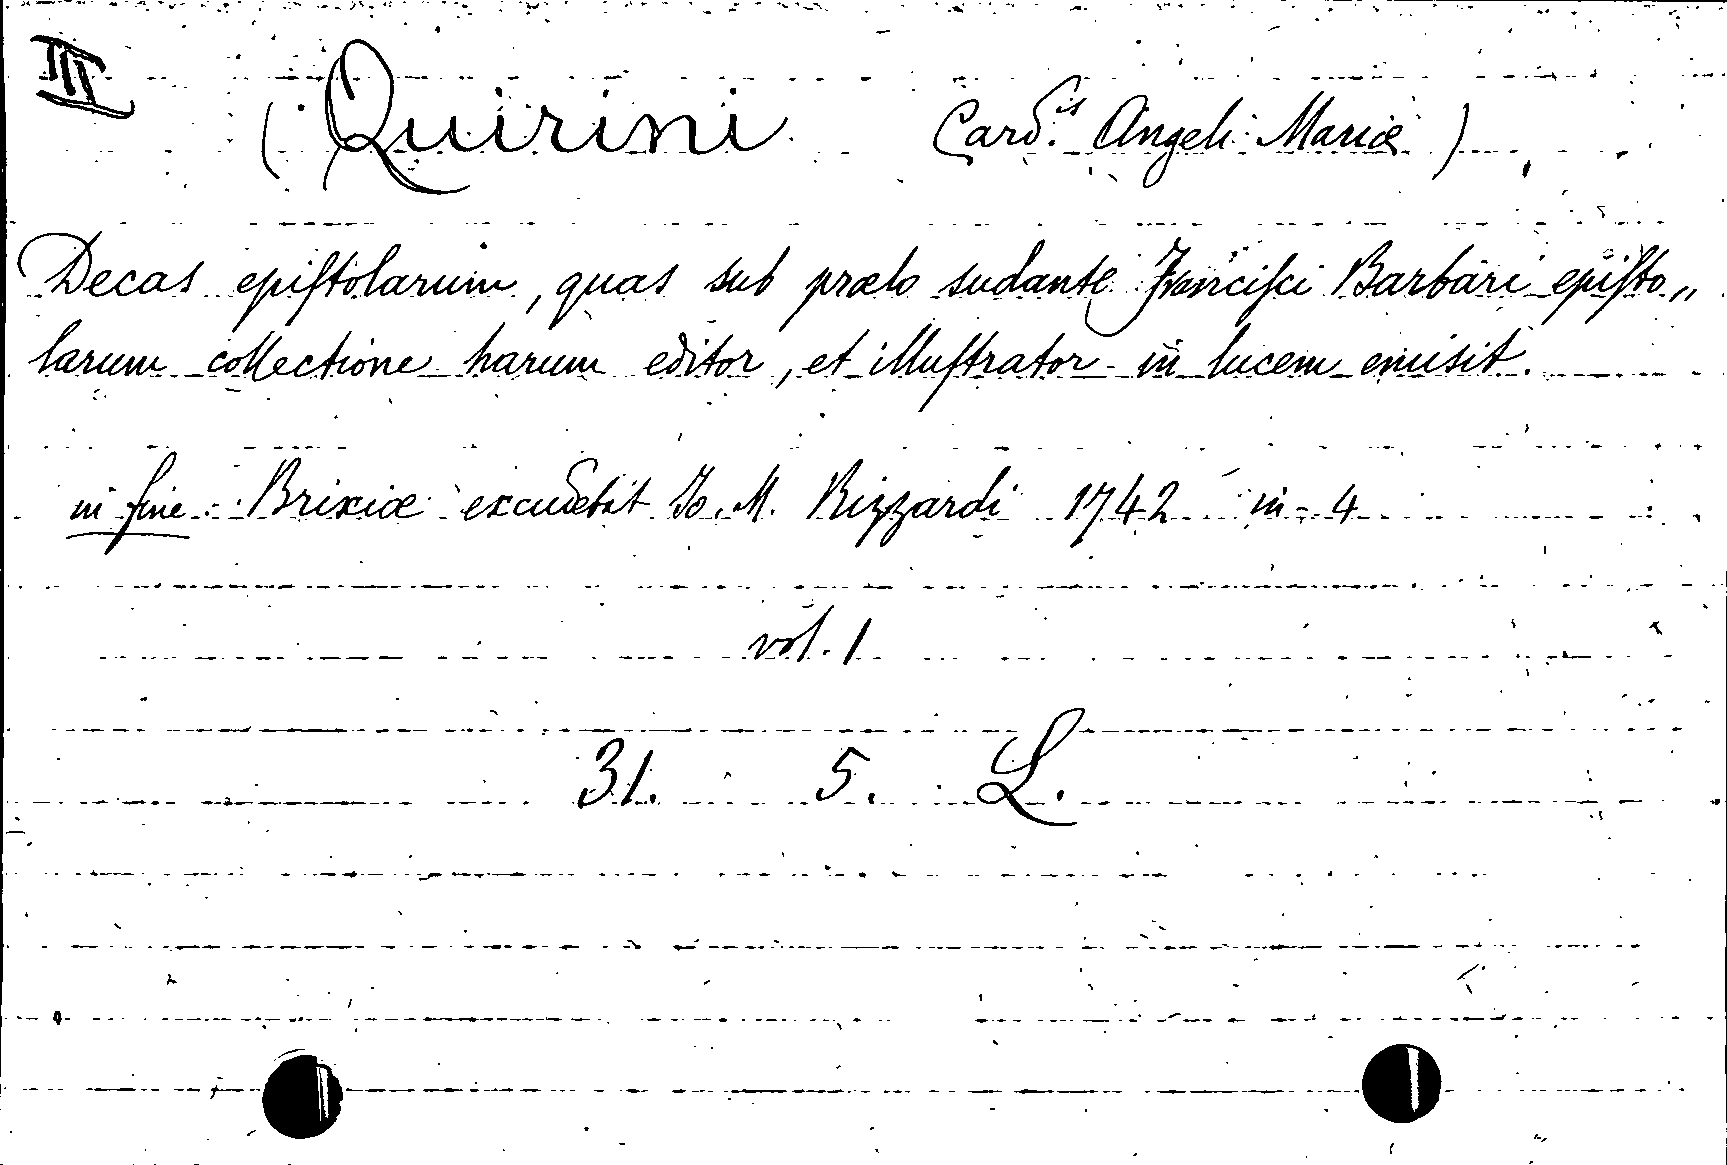 III
( Quirini Card.is Angeli Mariæ )
Decas epiſtolarum, quas sub prælo sudante Franciſci Barbari epiſto„
larum collectione harum editor, et illuſtrator in lucem emisit.
in fine: Brixiæ excudebat Jo. M. Rizzardi 1742 in-4
vol. 1
31. 5. L.